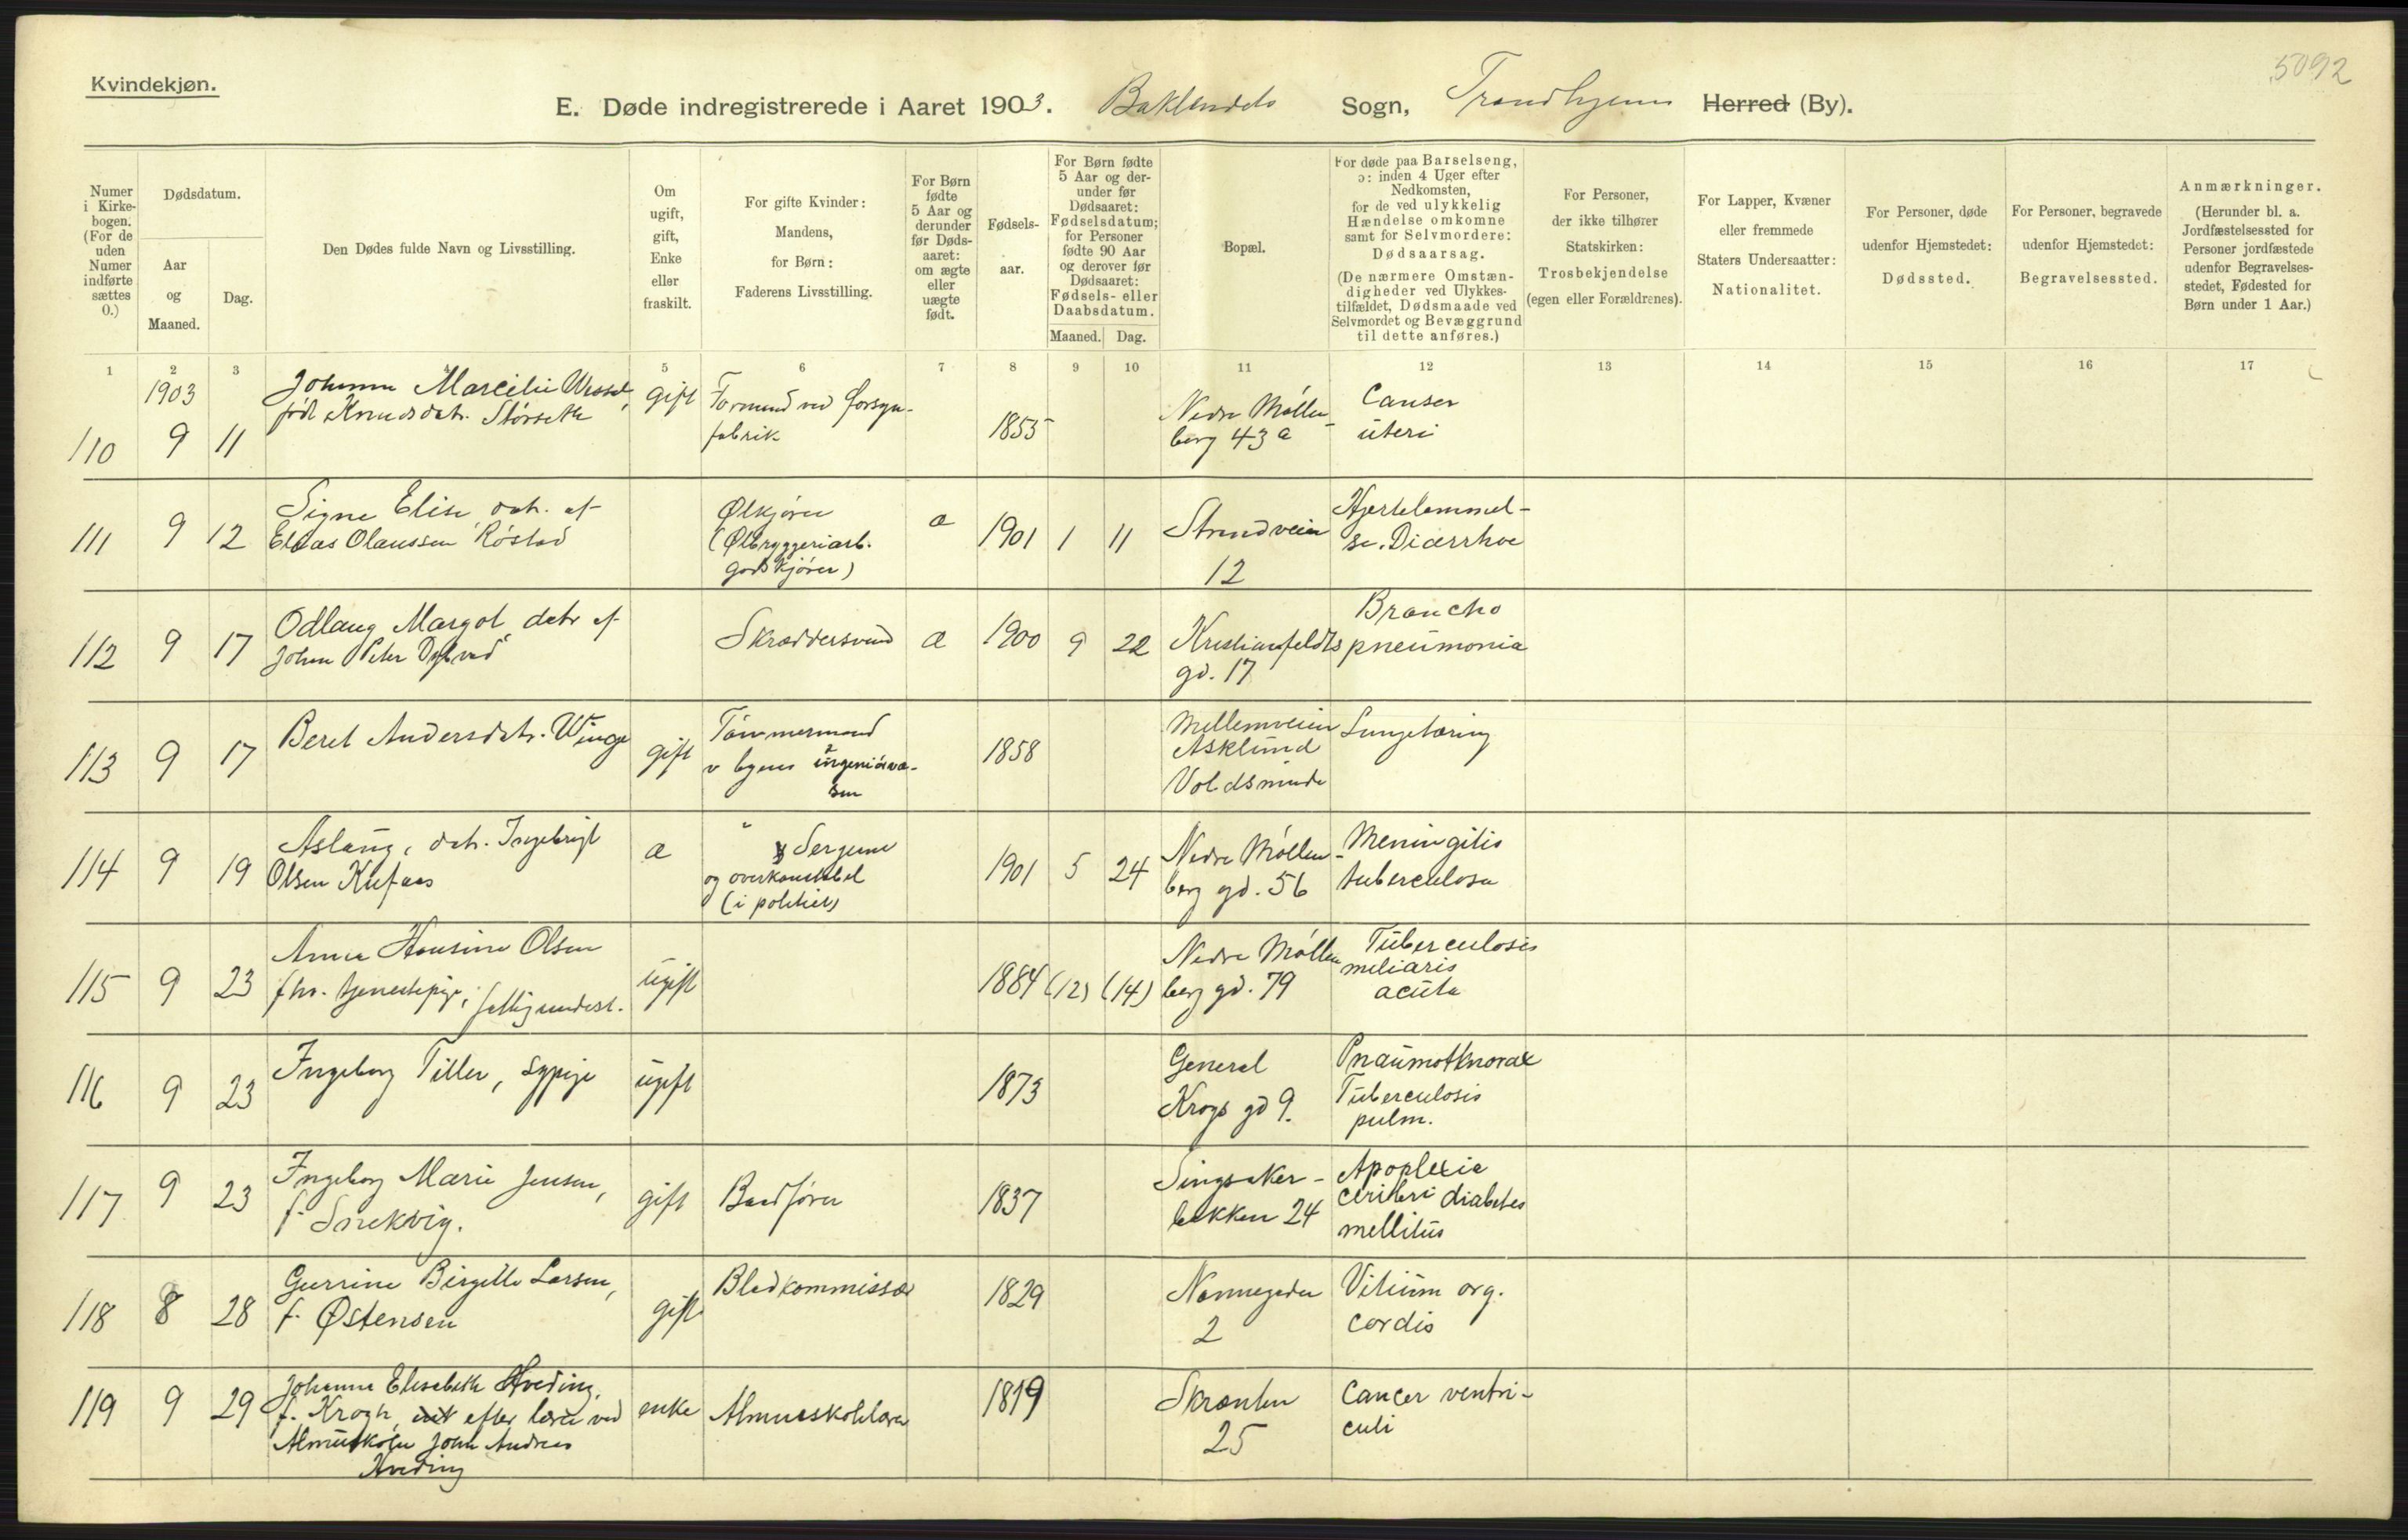 5092
Kvindekjøn.
E. Døde indregistrerede i Aaret 1903. Baklandets Sogn, Trondhjems Herred (By).
Numer i Kirkebogen. (For de uden Numer indførte sættes 0.)
Dødsdatum.
Aar og Maaned.
Dag.
Den Dødes fulde Navn og Livsstilling.
Om ugift, gift, Enke eller fraskilt.
For gifte Kvinder: Mandens, for Børn: Faderens Livsstilling.
For Børn fødte 5 Aar og derunder før Dødsaaret: om ægte eller uægte født.
Fødselsaar.
For Børn fødte 5 Aar og derunder før Dødsaaret: Fødselsdatum; for Personer fødte 90 Aar og derover før Dødsaaret: Fødsels- eller Daabsdatum.
Maaned. Dag.
Bopæl.
For døde paa Barselseng, ɔ: inden 4 Uger efter Nedkomsten, for de ved ulykkelig Hændelse omkomne samt for Selvmordere: Dødsaarsag. (De nærmere Omstændigheder ved Ulykkestilfældet, Dødsmaade ved Selvmordet og Bevæggrund til dette anføres.)
For Personer, der ikke tilhører Statskirken: Trosbekjendelse (egen eller Forældrenes).
For Lapper, Kvæner eller fremmede Staters Undersaatter: Nationalitet.
For Personer, døde udenfor Hjemstedet: Dødssted.
For Personer, begravede udenfor Hjemstedet: Begravelsessted.
Anmærkninger. (Herunder bl. a. Jordfæstelsessted for Personer jordfæstede udenfor Begravelsesstedet, Fødested for Børn under 1 Aar.)
1 2 3 5 6 7 8 9 10 11 12 13 14 15 16 17
1903
110 9 11
Johanna Marcelie
født Knudsdatr. Størseth
gift
Formand ved
fabrik
1853
Nedre Møllen-
berg 43 a
Canser
uteri
111 9 12
Signe Elise datr. af
Elias Olaussen Røstad
Ølkjører
(Ølbryggeriarb.
godskjører)
æ
1901 1 11
Strandveien
12
Hjertelammel-
se. Diærrhoe
112 9 17
Odlaug Margot datr af
Johan Peter
Skræddersvend
æ
1900 9 22
Kristianfeldts
gd. 17
Broncho
pneumonia
113 9 17
Beret Andersdatr. Winge
gift
Tømmermand
v byens ingeniørvæ-
sen
1858
Mellemveien
Asklund
Voldsminde
Lungetæring
114 9 19
Aslaug, datr. Ingebrigt
Olsen Kufaas
æ
Sergeant
og overkonstabel
(i politiet)
1901 5 24
Nedre Møllen-
berg gd. 56
Meningitis
tuberculosa
115 9 23
Anna Hansine Olsen
fhv. tjenestepige, fattigunderst.
ugift
1884 (12) (14)
Nedre Møllen
berg gd. 79
Tuberculosis
meliaris
acuta
116 9 23
Ingeborg Tiller, sypige
ugift
1873
General
Krogs gd 9.
Pnaumothorax
Tuberculosis
pulm.
117 9 23
Ingeborg Marie Jensen,
f. Snekvig.
gift
Baadfører
1837
Singsaker-
bakken 24
Apoplexia
ceribri diabetes
mellitus
118 8 28
Gurine Birgitte Larsen,
f. Østensen
gift
Bladkommissær
1829
Nonnegaden
2
Vitium org.
cordis
119 9 29
Johanna Elisabeth Hveding,
f. Krogh, efter lærer ved
Almueskolen John Andreas
Hveding
enke
Almueskolelærer
1819
Skrænten
25
Cancer ventri-
culi